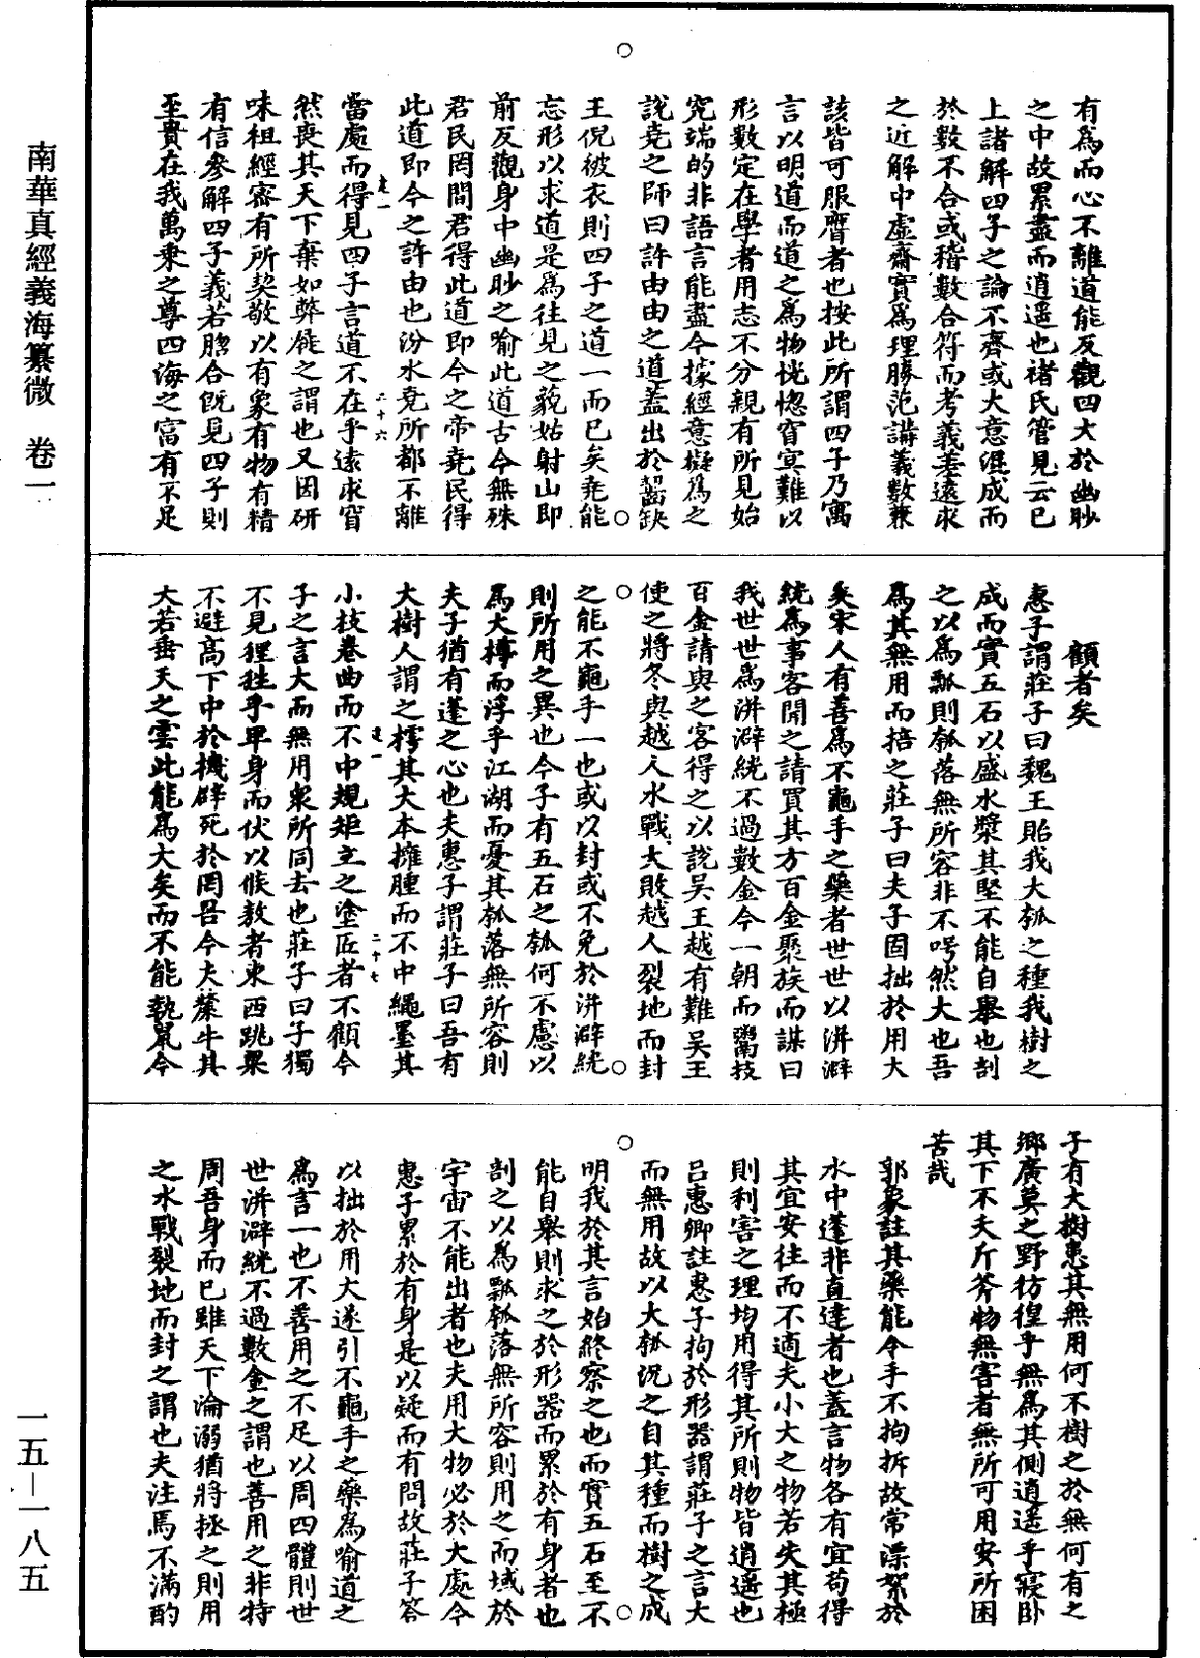 南華真經義海纂微　卷一
有為而心不離道能反觀四大於幽眇
之中故累盡而逍遥也褚氏管見云已
上諸解四子之論不齊或大意混成而
於數不合或稽數合符而考義差遠求
之近解中虛齋實為理勝范講義數兼
該皆可服膺者也按此所謂四子乃寓
言以明道而道之為物恍惚窅冥難以
形數定在學者用志不分親有所見始
究端的非語言能盡今據經意擬為之
說堯之師曰許由由之道蓋出於齧缺
王倪被衣則四子之道一而已矣堯能
忘形以求道是為往見之藐姑射山即
前反觀身中幽眇之喻此道古今無殊
君民罔間君得此道即今之帝堯民得
此道即今之許由也汾水堯所都不離
當處而得見四子言道不在乎遠求窅
然喪其天下棄如弊屣之謂也又因研
味祖經審有所契敬以有象有物有精
有信參解四子義若脗合既見四子則
至貴在我萬乘之尊四海之富有不足
顧者矣
惠子謂莊子曰魏王貽我大瓠之種我樹之
成而實五石以盛水漿其堅不能自舉也剖
之以為瓢則瓠落無所容非不呺然大也吾
為其無用而掊之莊子曰夫子固拙於用大
矣宋人有善為不龜手之藥者世世以洴澼
絖為事客聞之請買其方百金聚族而謀曰
我世世為洴澼絖不過數金今一朝而鬻技
百金請與之客得之以說吳王越有難吳王
使之將冬與越人水戰大敗越人裂地而封
之能不龜手一也或以封或不免於洴澼絖
則所用之異也今子有五石之瓠何不慮以
為大樽而浮乎江湖而憂其瓠落無所容則
夫子猶有蓬之心也夫惠子謂莊子曰吾有
大樹人謂之樗其大本擁腫而不中繩墨其
小枝卷曲而不中規矩立之塗匠者不顧今
子之言大而無用衆所同去也莊子曰子獨
不見狸狌乎卑身而伏以候敖者東西跳梁
不避高下中於機辟死於罔罟今夫斄牛其
大若垂天之雲此能為大矣而不能執鼠今
子有大樹患其無用何不樹之於無何有之
鄉廣莫之野彷徨乎無為其側逍遥乎寢卧
其下不夭斤斧物無害者無所可用安所困
苦哉
郭象註其藥能令手不拘拆故常漂絮於
水中蓬非直達者也蓋言物各有宜苟得
其宜安往而不適夫小大之物若失其極
則利害之理均用得其所則物皆逍遥也
呂惠卿註惠子拘於形器謂莊子之言大
而無用故以大瓠況之自其種而樹之成
明我於其言始終察之也而實五石至不
能自舉則求之於形器而累於有身者也
剖之以為瓢瓠落無所容則用之而域於
宇宙不能出者也夫用大物必於大處今
惠子累於有身是以疑而有問故莊子答
以拙於用大遂引不龜手之藥為喻道之
為言一也不善用之不足以周四體則世
世洴澼絖不過數金之謂也善用之非特
周吾身而已雖天下淪溺猶將拯之則用
之水戰裂地而封之謂也夫注焉不滿酌
一五—一八五